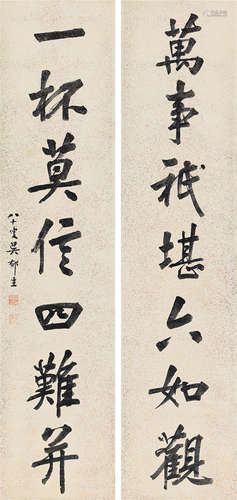 萬事祇堪六如觀
一杯莫信四難并
八十叟吳郁生